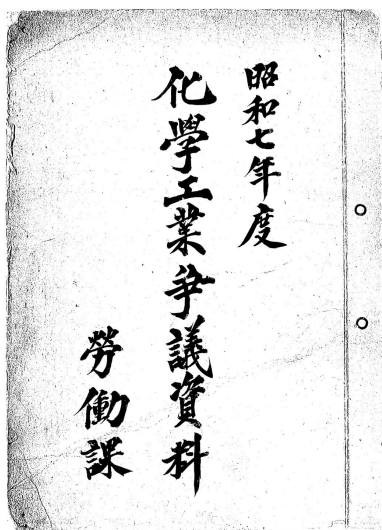 昭和七年度
化學工業爭議資料
勞働課